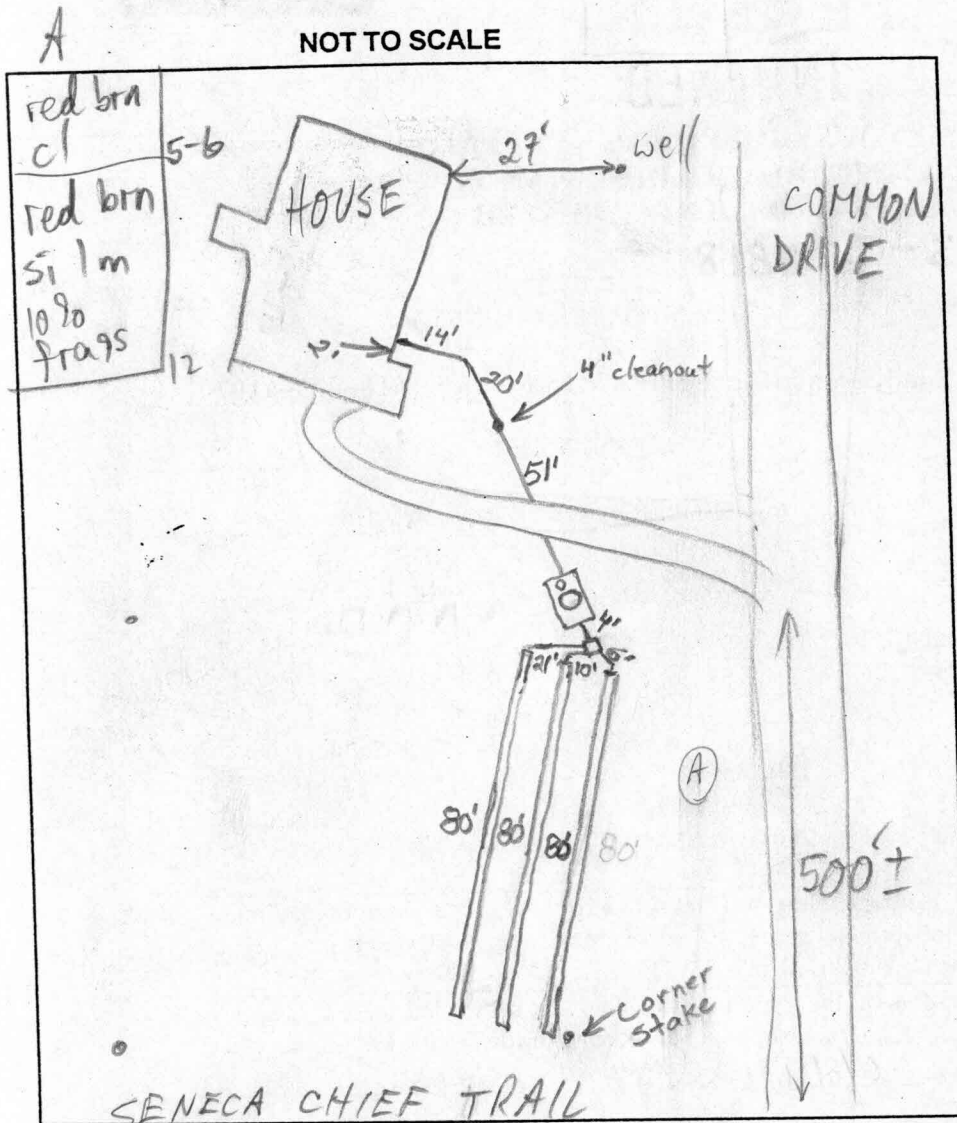 A
NOT TO SCALE
red brn
cl
5-6
red brn
si lm
10%
frags
12
HOUSE
27'
well
COMMON
DRIVE
14'
20'
4" cleanout
51'
4'
21'
10'
80'
80'
80'
80'
A
500' ±
corner
stake
SENECA CHIEF TRAIL